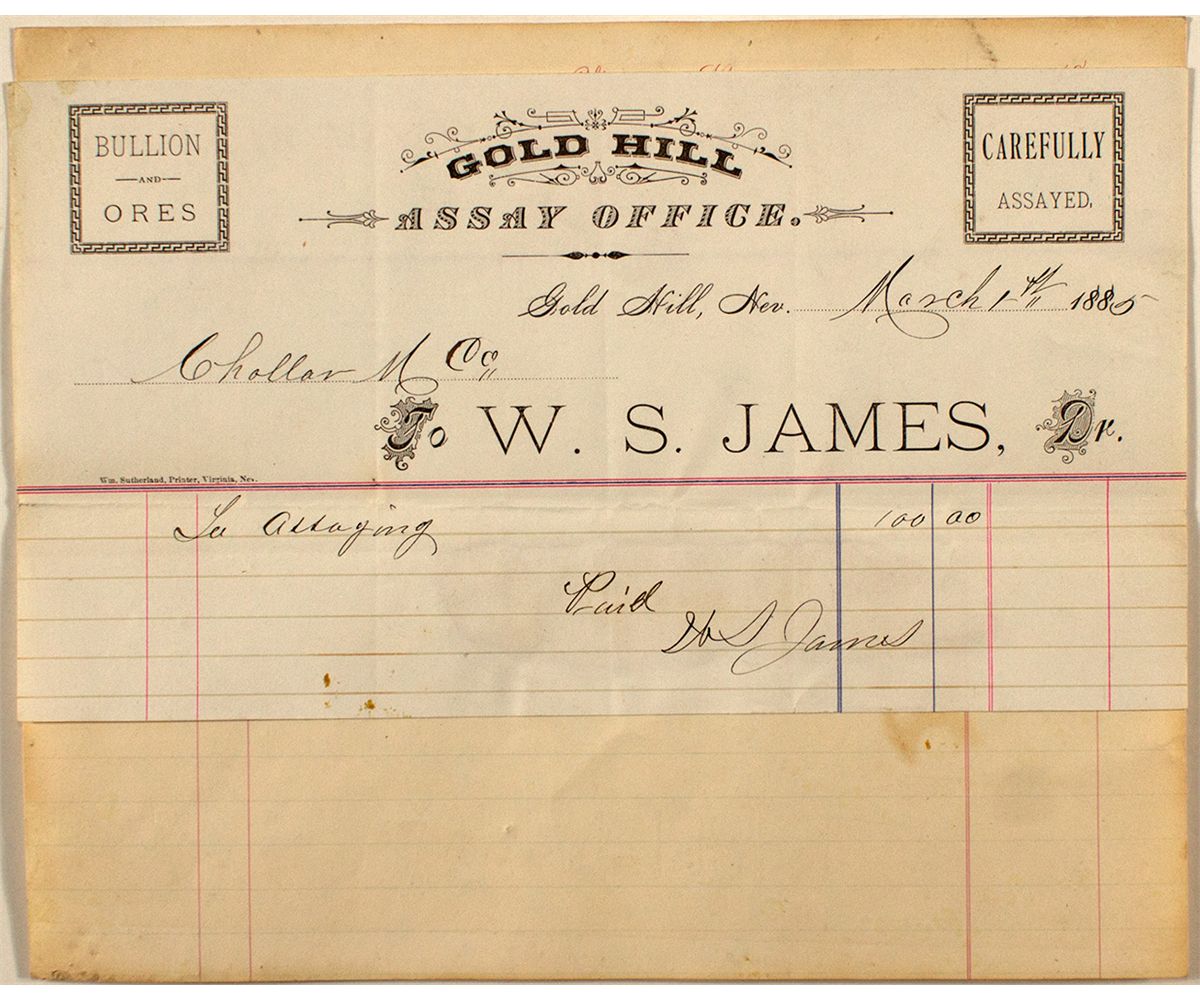 BULLION
AND
ORES
GOLD HILL
ASSAY OFFICE.
CAREFULLY
ASSAYED.
Gold Hill, Nev. March 1st 1885
Chollar M Co
To W. S. JAMES, Dr.
Wm. Sutherland, Printer, Virginia, Nev.
To Assaying 100 00
Paid
W S James